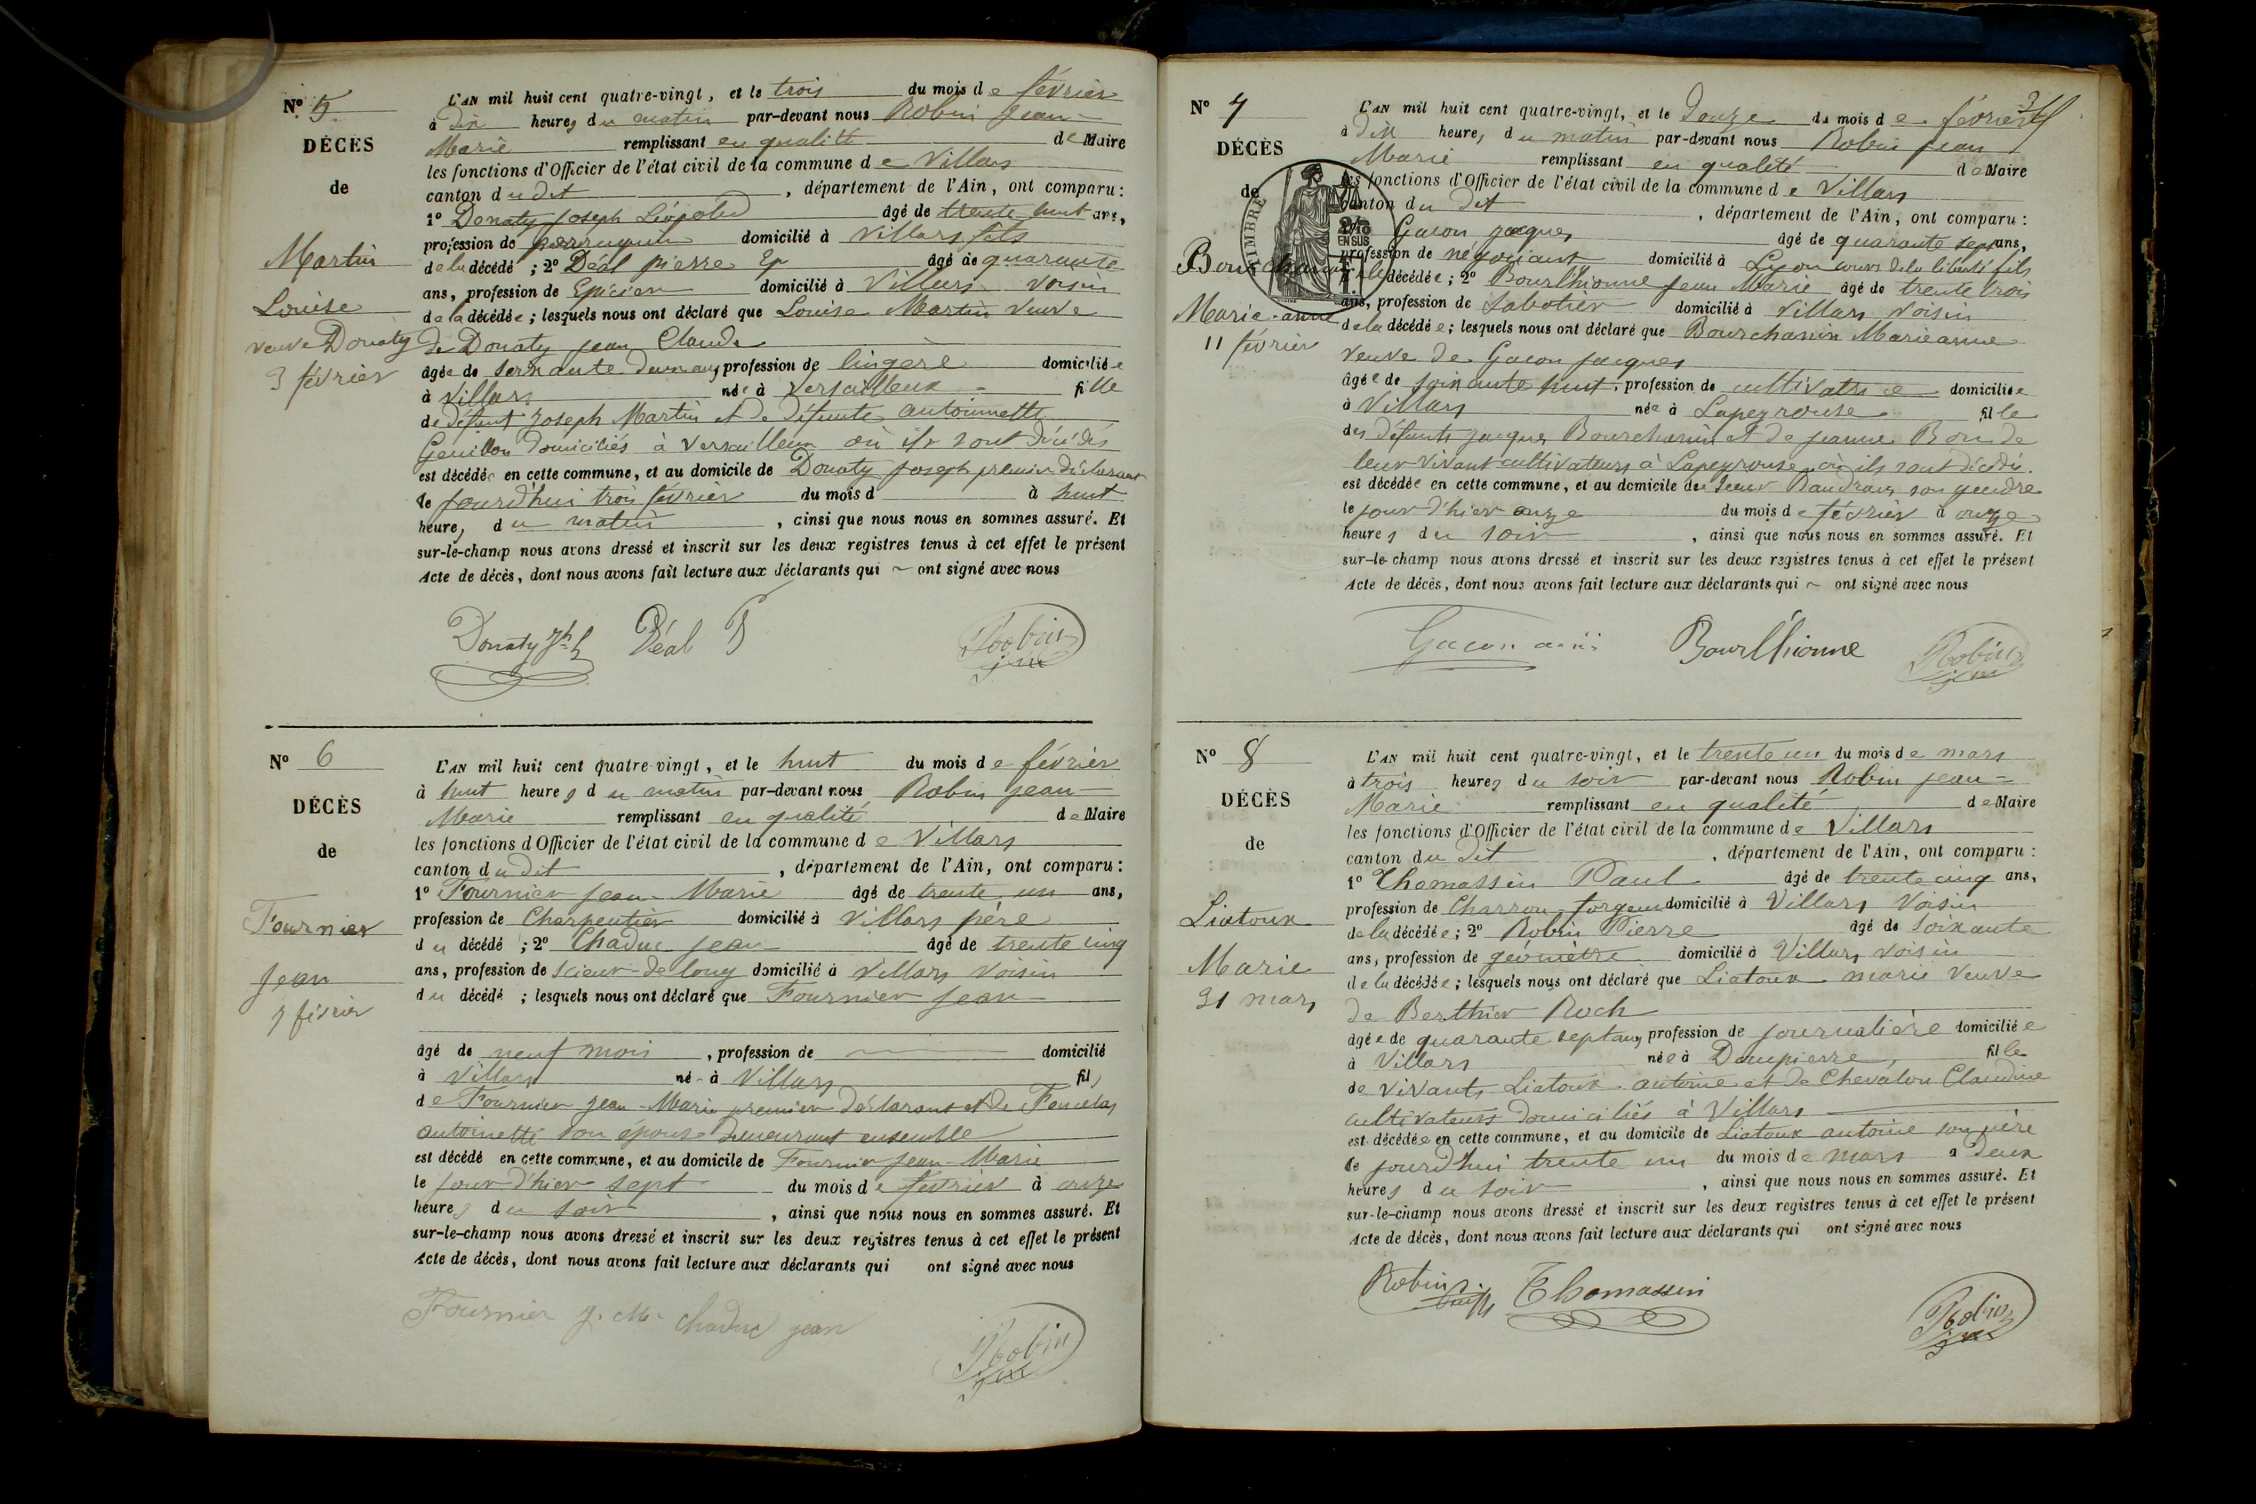 N° 5.
DÉCÈS
de
Martin
Louise
veuve Donaty
3 février
L'AN mil huit cent quatre-vingt, et le trois du mois de février
à dix heures du matin par-devant nous Robin Jean-
Marie remplissant en qualité de Maire
les fonctions d'Officier de l'état civil de la commune de Villars
canton dudit, département de l'Ain, ont comparu:
1° Donaty Joseph Léopold âgé de trente huit ans,
profession de perruquier domicilié à Villars fils
de la décédé; 2° Déal pierre Ep âgé de quarante
ans, profession de Epicier domicilié à Villars voisin
de la décédée; lesquels nous ont déclaré que Louise Martin veuve
de Donaty jean Claude
âgée de soixante deux ans profession de lingère domiciliée
à Villars née à Versailleux fille
de défunt Joseph Martin et de défunte antoinette
domiciliés à Versailleux où ils sont décédés
est décédée en cette commune, et au domicile de Donaty Joseph premier déclarant
le jourd'hui trois février du mois d à huit
heures du matin, ainsi que nous nous en sommes assuré. Et
sur-le-champ nous avons dressé et inscrit sur les deux registres tenus à cet effet le présent
Acte de décès, dont nous avons fait lecture aux déclarants qui ~ ont signé avec nous
Donaty Jh L Déal P Robin
N° 6
DÉCÈS
de
Fournier
Jean
7 février
L'AN mil huit cent quatre-vingt, et le huit du mois de février
à huit heures du matin par-devant nous Robin Jean-
Marie remplissant en qualité de Maire
les fonctions d'Officier de l'état civil de la commune de Villars
canton dudit, département de l'Ain, ont comparu:
1° Fournier Jean-Marie âgé de trente un ans,
profession de Charpentier domicilié à Villars père
du décédé; 2° Chaduc Jean âgé de trente cinq
ans, profession de Scieur de long domicilié à Villars voisin
du décédé; lesquels nous ont déclaré que Fournier Jean
âgé de neuf mois, profession de domicilié
à Villars né à Villars fils
de Fournier Jean-Marie premier déclarant et de
antoinette son épouse demeurant ensemble
est décédé en cette commune, et au domicile de Fournier Jean-Marie
le jour d'hier sept du mois de février à onze
heures du soir, ainsi que nous nous en sommes assuré. Et
sur-le-champ nous avons dressé et inscrit sur les deux registres tenus à cet effet le présent
Acte de décès, dont nous avons fait lecture aux déclarants qui ont signé avec nous
Fournier J. M. Chaduc jean Robin
N° 7
DÉCÈS
de
TIMBRE
2/10
EN SUS
1 F.
Bourchanin
Marie-anne
11 février
L'AN mil huit cent quatre-vingt, et le Douze du mois de février
à dix heures du matin par-devant nous Robin Jean
Marie remplissant en qualité de Maire
les fonctions d'Officier de l'état civil de la commune de Villars
canton du Dit, département de l'Ain, ont comparu:
Gacon jacques âgé de quarante sept ans,
profession de négociant domicilié à Lyon cours de la liberté fils
de la décédée; 2° Bourlhionne Jean Marie âgé de trente trois
ans, profession de Sabotier domicilié à Villars voisin
de la décédée; lesquels nous ont déclaré que Bourchanin Marie anne
veuve de Gacon jacques
âgée de soixante huit, profession de cultivatrice domiciliée
à Villars née à Lapeyrouse fille
des défunts jacques Bourchanin et de jeanne Bon de
leur vivant cultivateurs à Lapeyrouse où ils sont décédés.
est décédée en cette commune, et au domicile du sieur Baudran son gendre
le jour d'hier onze du mois de février à onze
heures du soir, ainsi que nous nous en sommes assuré. Et
sur-le-champ nous avons dressé et inscrit sur les deux registres tenus à cet effet le présent
Acte de décès, dont nous avons fait lecture aux déclarants qui ~ ont signé avec nous
Gacon ainé Bourlhionne Robin
N° 8
DÉCÈS
de
Liatoux
Marie
31 mars
L'AN mil huit cent quatre-vingt, et le trente un du mois de mars
à trois heures du soir par-devant nous Robin Jean-
Marie remplissant en qualité de Maire
les fonctions d'Officier de l'état civil de la commune de Villars
canton du Dit, département de l'Ain, ont comparu:
1° Thomassin Paul âgé de trente cinq ans,
profession de Charron-forgeur domicilié à Villars voisin
de la décédée; 2° Robin Pierre âgé de soixante
ans, profession de géomètre domicilié à Villars voisin
de la décédée; lesquels nous ont déclaré que Liatoux marie veuve
de Berthier Roch
âgée de quarante sept ans, profession de journalière domiciliée
à Villars née à Dompierre, fille
de vivants Liatoux antoine et de Chevalon Claudine
cultivateurs domiciliés à Villars
est décédée en cette commune, et au domicile de Liatoux antoine son père
le jourd'hui trente un du mois de mars à deux
heures du soir, ainsi que nous nous en sommes assuré. Et
sur-le-champ nous avons dressé et inscrit sur les deux registres tenus à cet effet le présent
Acte de décès, dont nous avons fait lecture aux déclarants qui ont signé avec nous
Robin Thomassin Robin